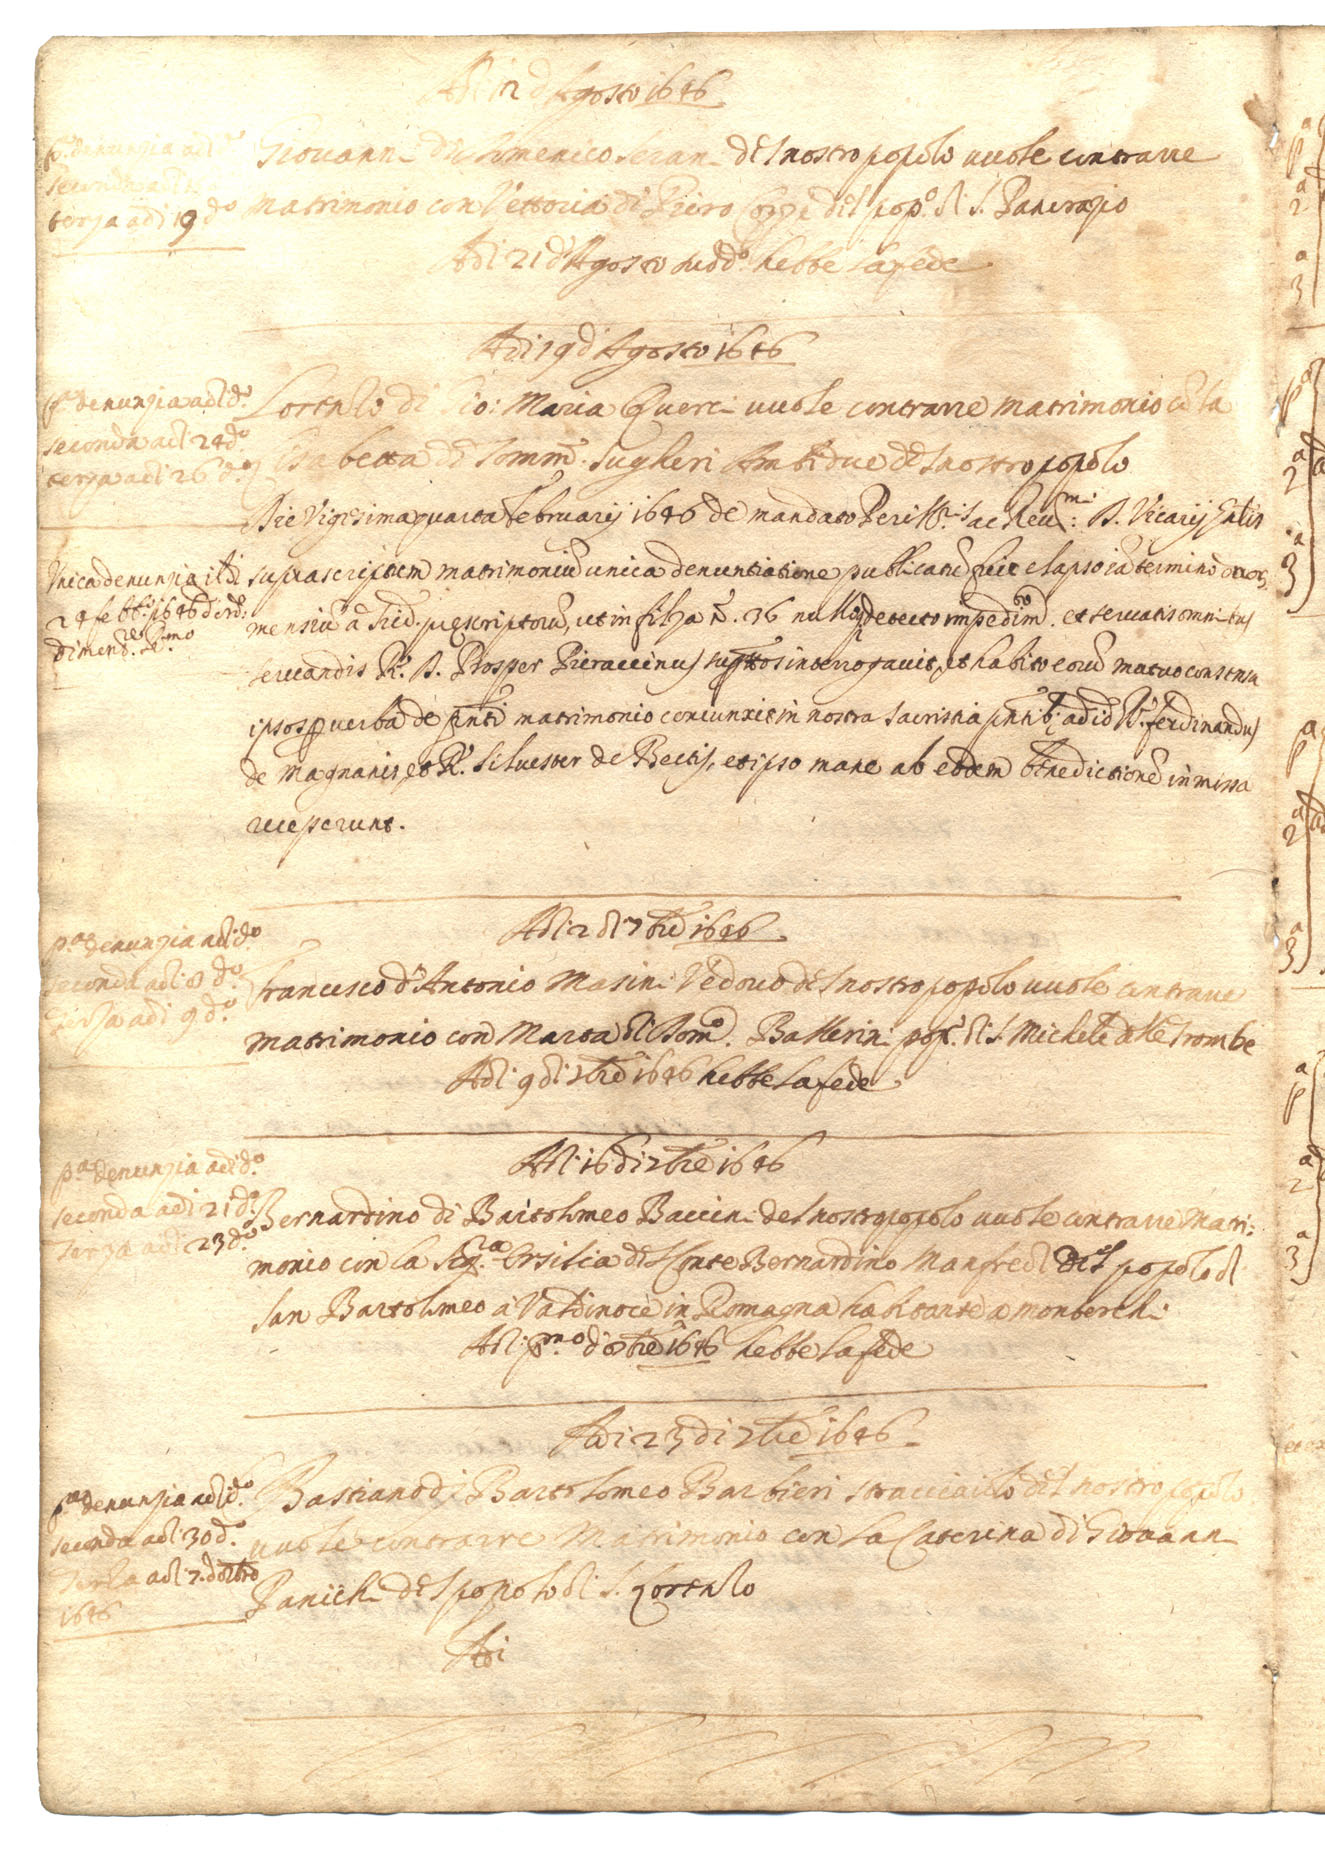 Adi 12 d Agosto 1646
p.ª denunzia adi d.º
seconda adi
terza adi 19 d.º
Giovanni di Domenico del nostro popolo vuole contrarre
matrimonio con Vettoria di Piero del pop.º di S. Panerazio
Adi 21 d'Agosto sud.º hebbe la fede
Adi 19 d'Agosto 1646
p.ª denunzia adi d.º
seconda adi 24 d.º
terza adi 26 d.º
Lorenzo di Gio: Maria Querci vuole contrarre matrimonio cõ la
Lisabetta di Tomm.º Sugheri Ambidue del nostro popolo
Die Vigesima quarta februarij 1646 de mandato Perill.ri ac Reu.mi D. Vicarij Gnlis
Unica denunzia il dì
24 febb.º 1646 d'ord.e
di Mons.r Ill.mo
suprascriptum matrimoniũ unica denuntiatione publicatũ fuit elapso iã termino duor.
mensiũ à Sid. prescriptorũ, ut in filza N. 36 nulloq detecto impedim.to et servatis omnibus
servandis R.s D. Prosper Pieraccinus sup.ttos interrogavit, et habito eorũ mutuo consensu
ipsos p verba de pñti matrimonio coniunxit in nostra sacristia pñtib. ad id R.s ferdinandus
de Magnanis, et R.s Siluester de Bectis, et ipso mane ab eodem benedictionẽ in missa
receperunt.
Adi 2 di 7bre 1646
p.ª denunzia adi d.º
seconda adi 8 d.º
terza adi 9 d.º
francesco d'Antonio Masini Vedovo del nostro popolo vuole contrarre
matrimonio con Marta di Dom.º Ballerini pop.º di S. Michele alle Trombe
Adi 9 di 7bre 1646 hebbe la fede
Adi 16 di 7bre 1646
p.ª denunzia adi d.º
seconda adi 21 d.º
terza adi 23 d.º
Bernardino di Bartolomeo Baccini del nostro popolo vuole contrarre Matri:
monio con la Sig.ra Ersilia del Conte Bernardino Manfredi del popolo di
San Bartolomeo à Valdinoce in Romagna habitante a Monterchi
Adi p.mo d'8bre 1646 hebbe la fede
Adi 23 di 7bre 1646
p.ª denunzia adi d.º
seconda adi 30 d.º
terza adi 7. d'ottbre
1646
Bastiano di Bartolomeo Barbieri stracciaiolo del nostro popolo
vuole contrarre Matrimonio con la Caterina di Giovanni
Panichi del popolo di S. Lorenzo
Adi